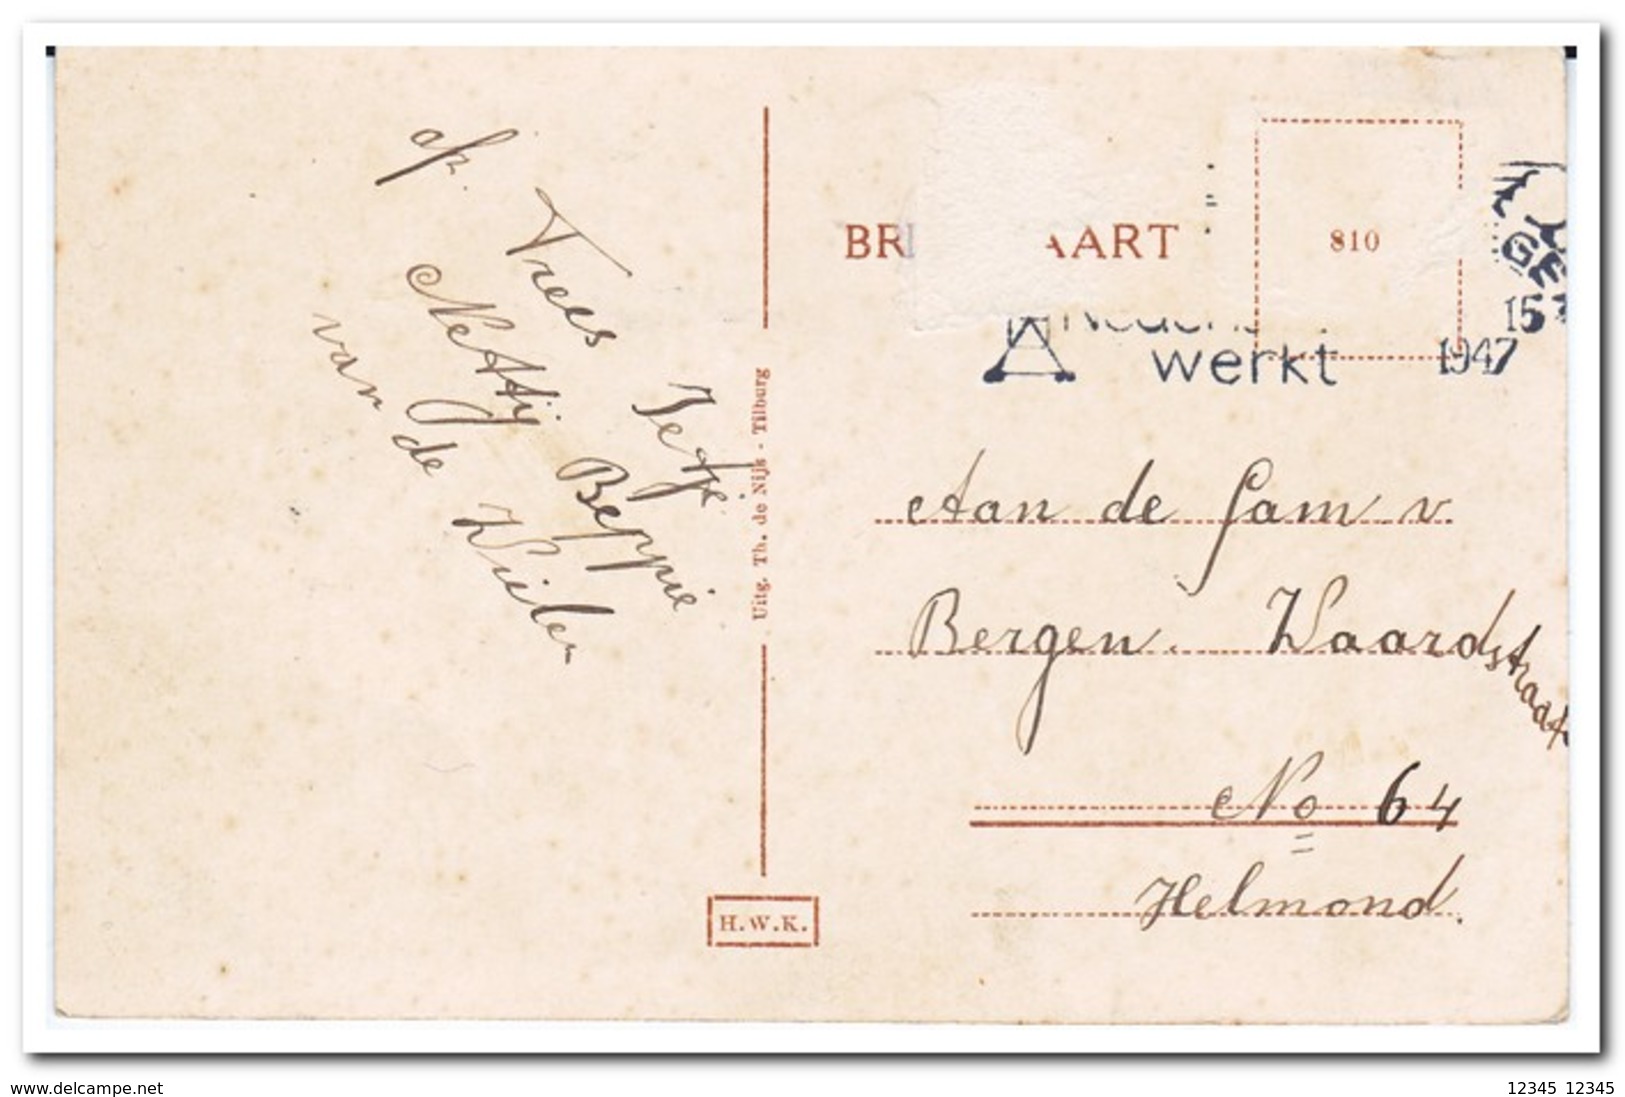 af.
Trees Jetje
Nettij Beppie
van de
BR AART
810
GE
15
1947
werkt
Uitg. Th. de Nijs - Tilburg
Aan de Fam v
Bergen. Waardstraat
No 64
Helmond.
H.W.K.
www.delcampe.net
12345 12345